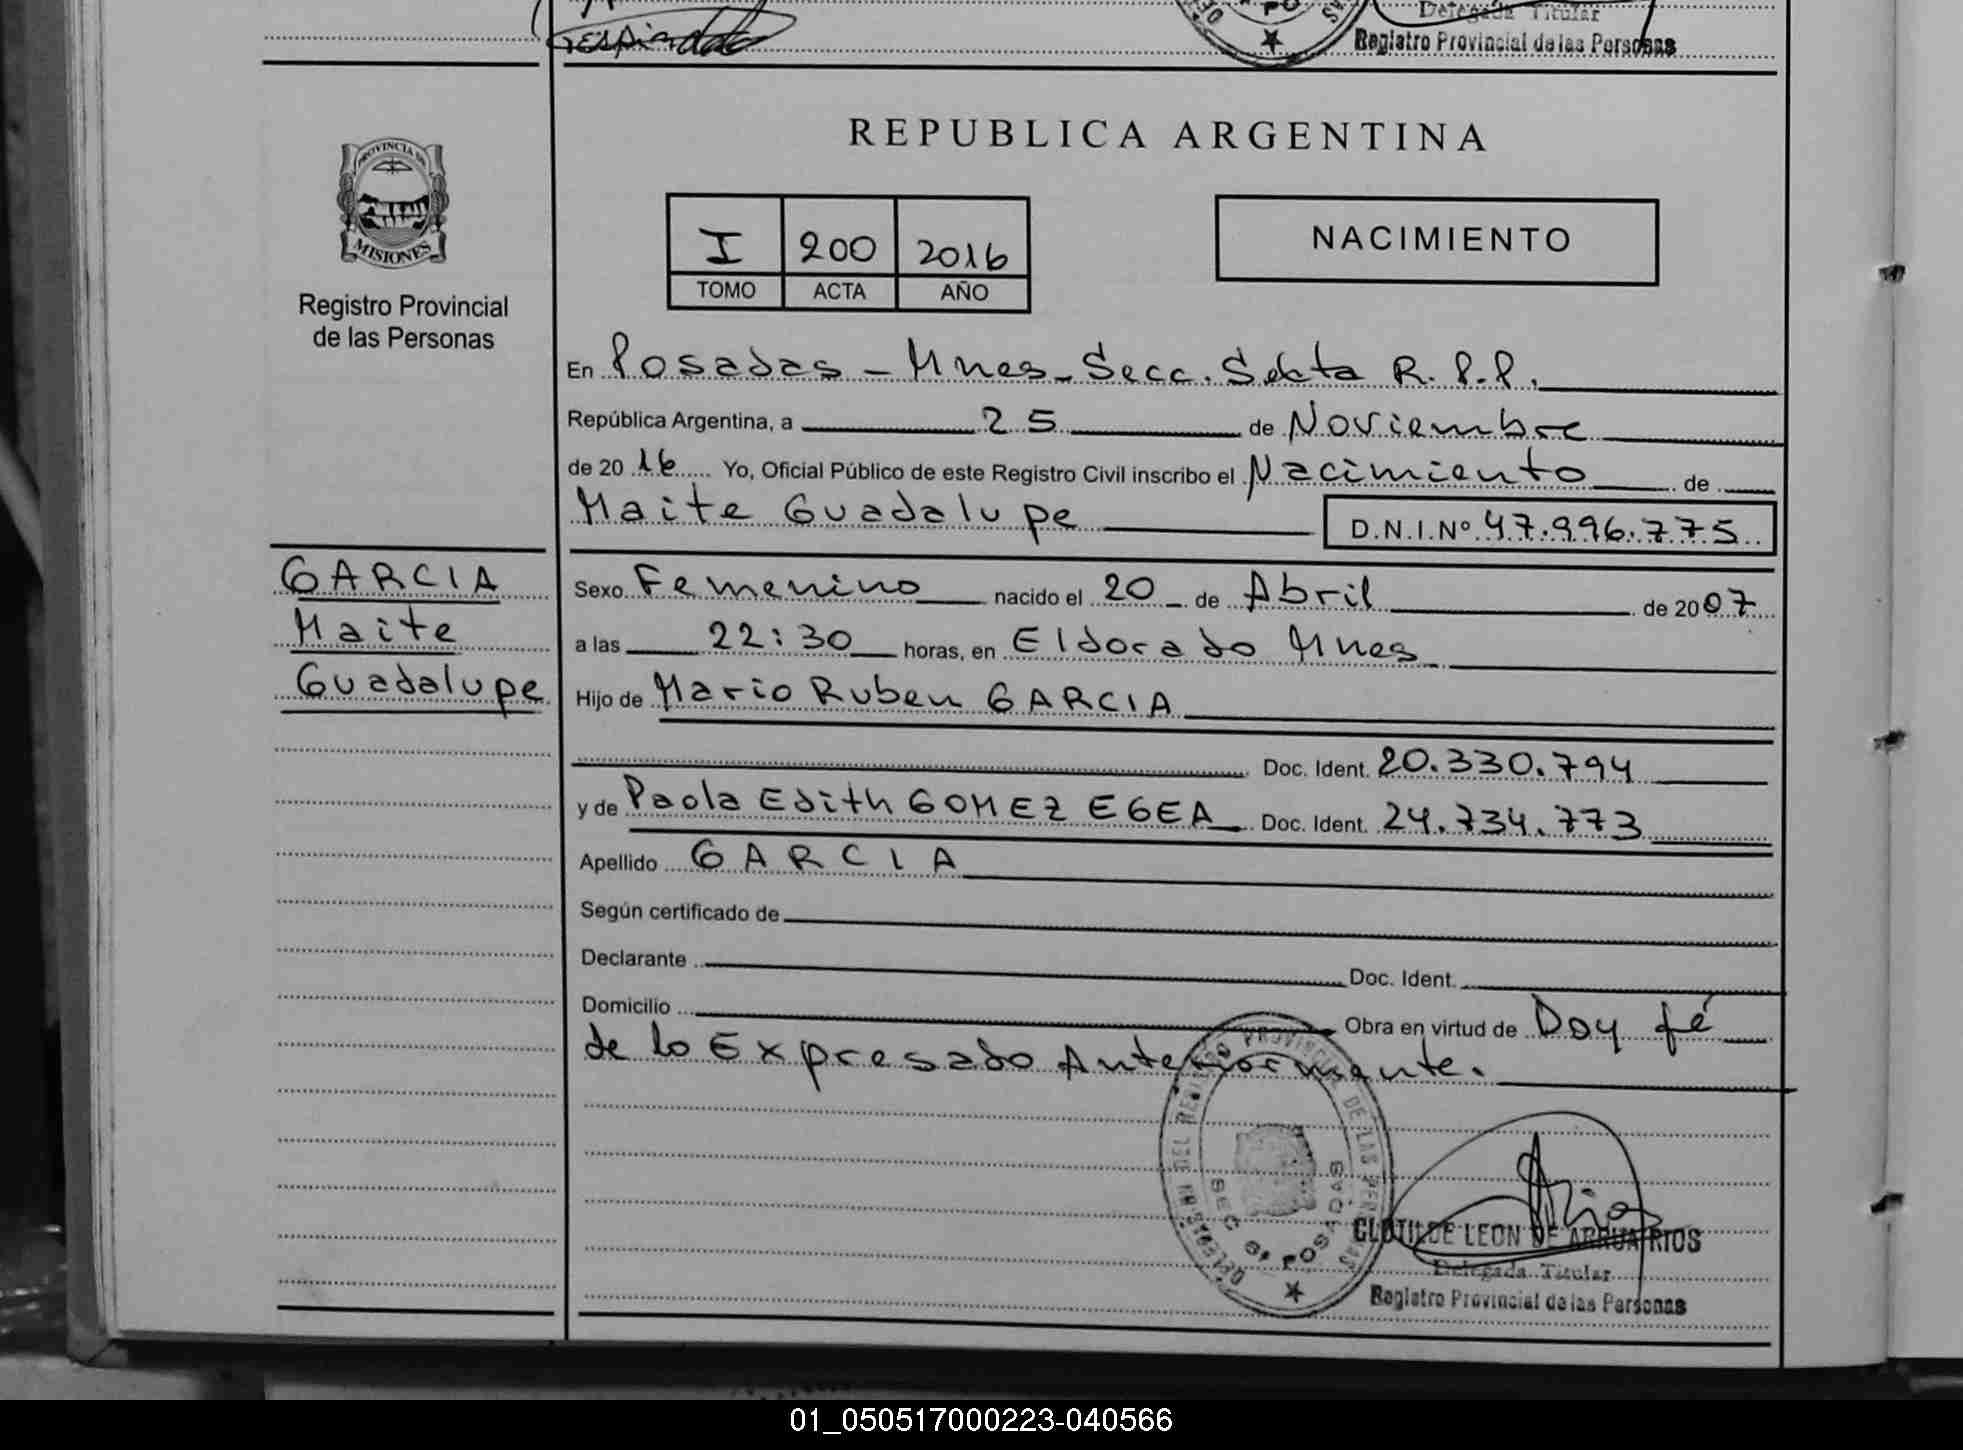 respiandato
Delegada Titular
Registro Provincial de las Personas
PROVINCIA DE
MISIONES
Registro Provincial
de las Personas
REPUBLICA ARGENTINA
I 200 2016
TOMO ACTA AÑO
NACIMIENTO
En Posadas - Mnes - Secc. Sexta R. P. P.
República Argentina, a 25 de Noviembre
de 2016 Yo, Oficial Público de este Registro Civil inscribo el Nacimiento de
Maite Guadalupe D.N.I.Nº 47.996.775
GARCIA
Maite
Guadalupe
Sexo Femenino nacido el 20 de Abril de 2007
a las 22:30 horas, en Eldorado Mnes
Hijo de Mario Ruben GARCIA
Doc. Ident. 20.330.794
y de Paola Edith GOMEZ EGEA Doc. Ident. 24.734.773
Apellido GARCIA
Según certificado de
Declarante Doc. Ident.
Domicilio Obra en virtud de Doy fé
de lo Expresado Anteriormente.
DEL REGISTRO PROVINCIAL DE LAS PERSONAS
SEC 6ª POSADAS
CLOTILDE LEON DE ARRUA RIOS
Delegada Titular
Registro Provincial de las Personas
01_050517000223-040566